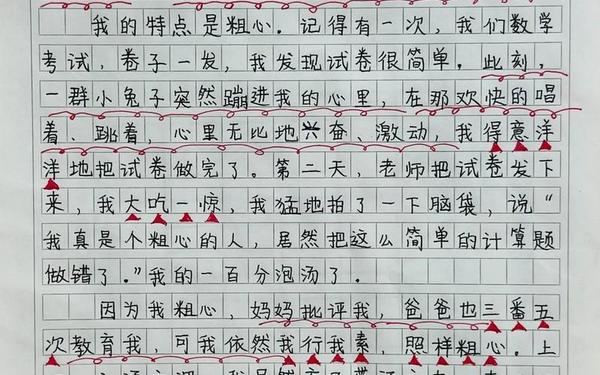 我的特点是粗心。记得有一次,我们数学
考试,卷子一发,我发现试卷很简单。此刻,
一群小兔子突然蹦进我的心里,在那欢快的唱
着、跳着,心里无比地兴奋、激动,我得意洋
洋地把试卷做完了。第二天,老师把试卷发下
来,我大吃一惊,我猛地拍了一下脑袋,说“
我真是个粗心的人,居然把这么简单的计算题
做错了。”我的一百分泡汤了。
因为我粗心,妈妈批评我,爸爸也三番五
次教育我,可我依然我行我素,照样粗心。上